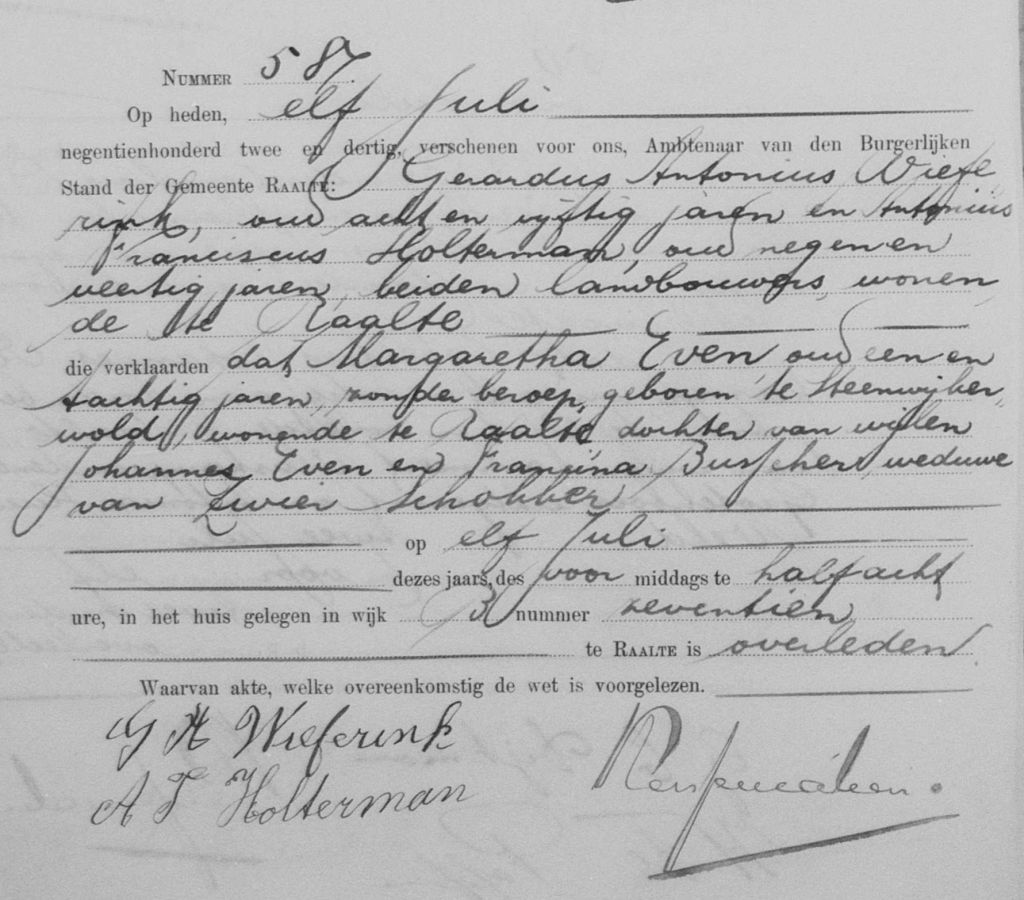 NUMMER 587.
Op heden, elf Juli
negentienhonderd twee en dertig, verschenen voor ons, Ambtenaar van den Burgerlijken
Stand der Gemeente RAALTE: Gerardus Antonius Wiefe
rink, oud acht en vijftig jaren en Antonius
Franciscus Holterman, oud negen en
veertig jaren, beiden landbouwers, wonen,
de te Raalte
die verklaarden dat Margaretha Even, oud een en
tachtig jaren, zonder beroep, geboren te Steenwijker„
wold, wonende te Raalte, dochter van wijlen
Johannes Even en Fransina Busscher, weduwe
van Zwier Schokker
op elf Juli
dezes jaars, des voor middags te half acht
ure, in het huis gelegen in wijk B nummer zeventien
te RAALTE is overleden.
Waarvan akte, welke overeenkomstig de wet is voorgelezen.
G A Wieferink
A F Holterman